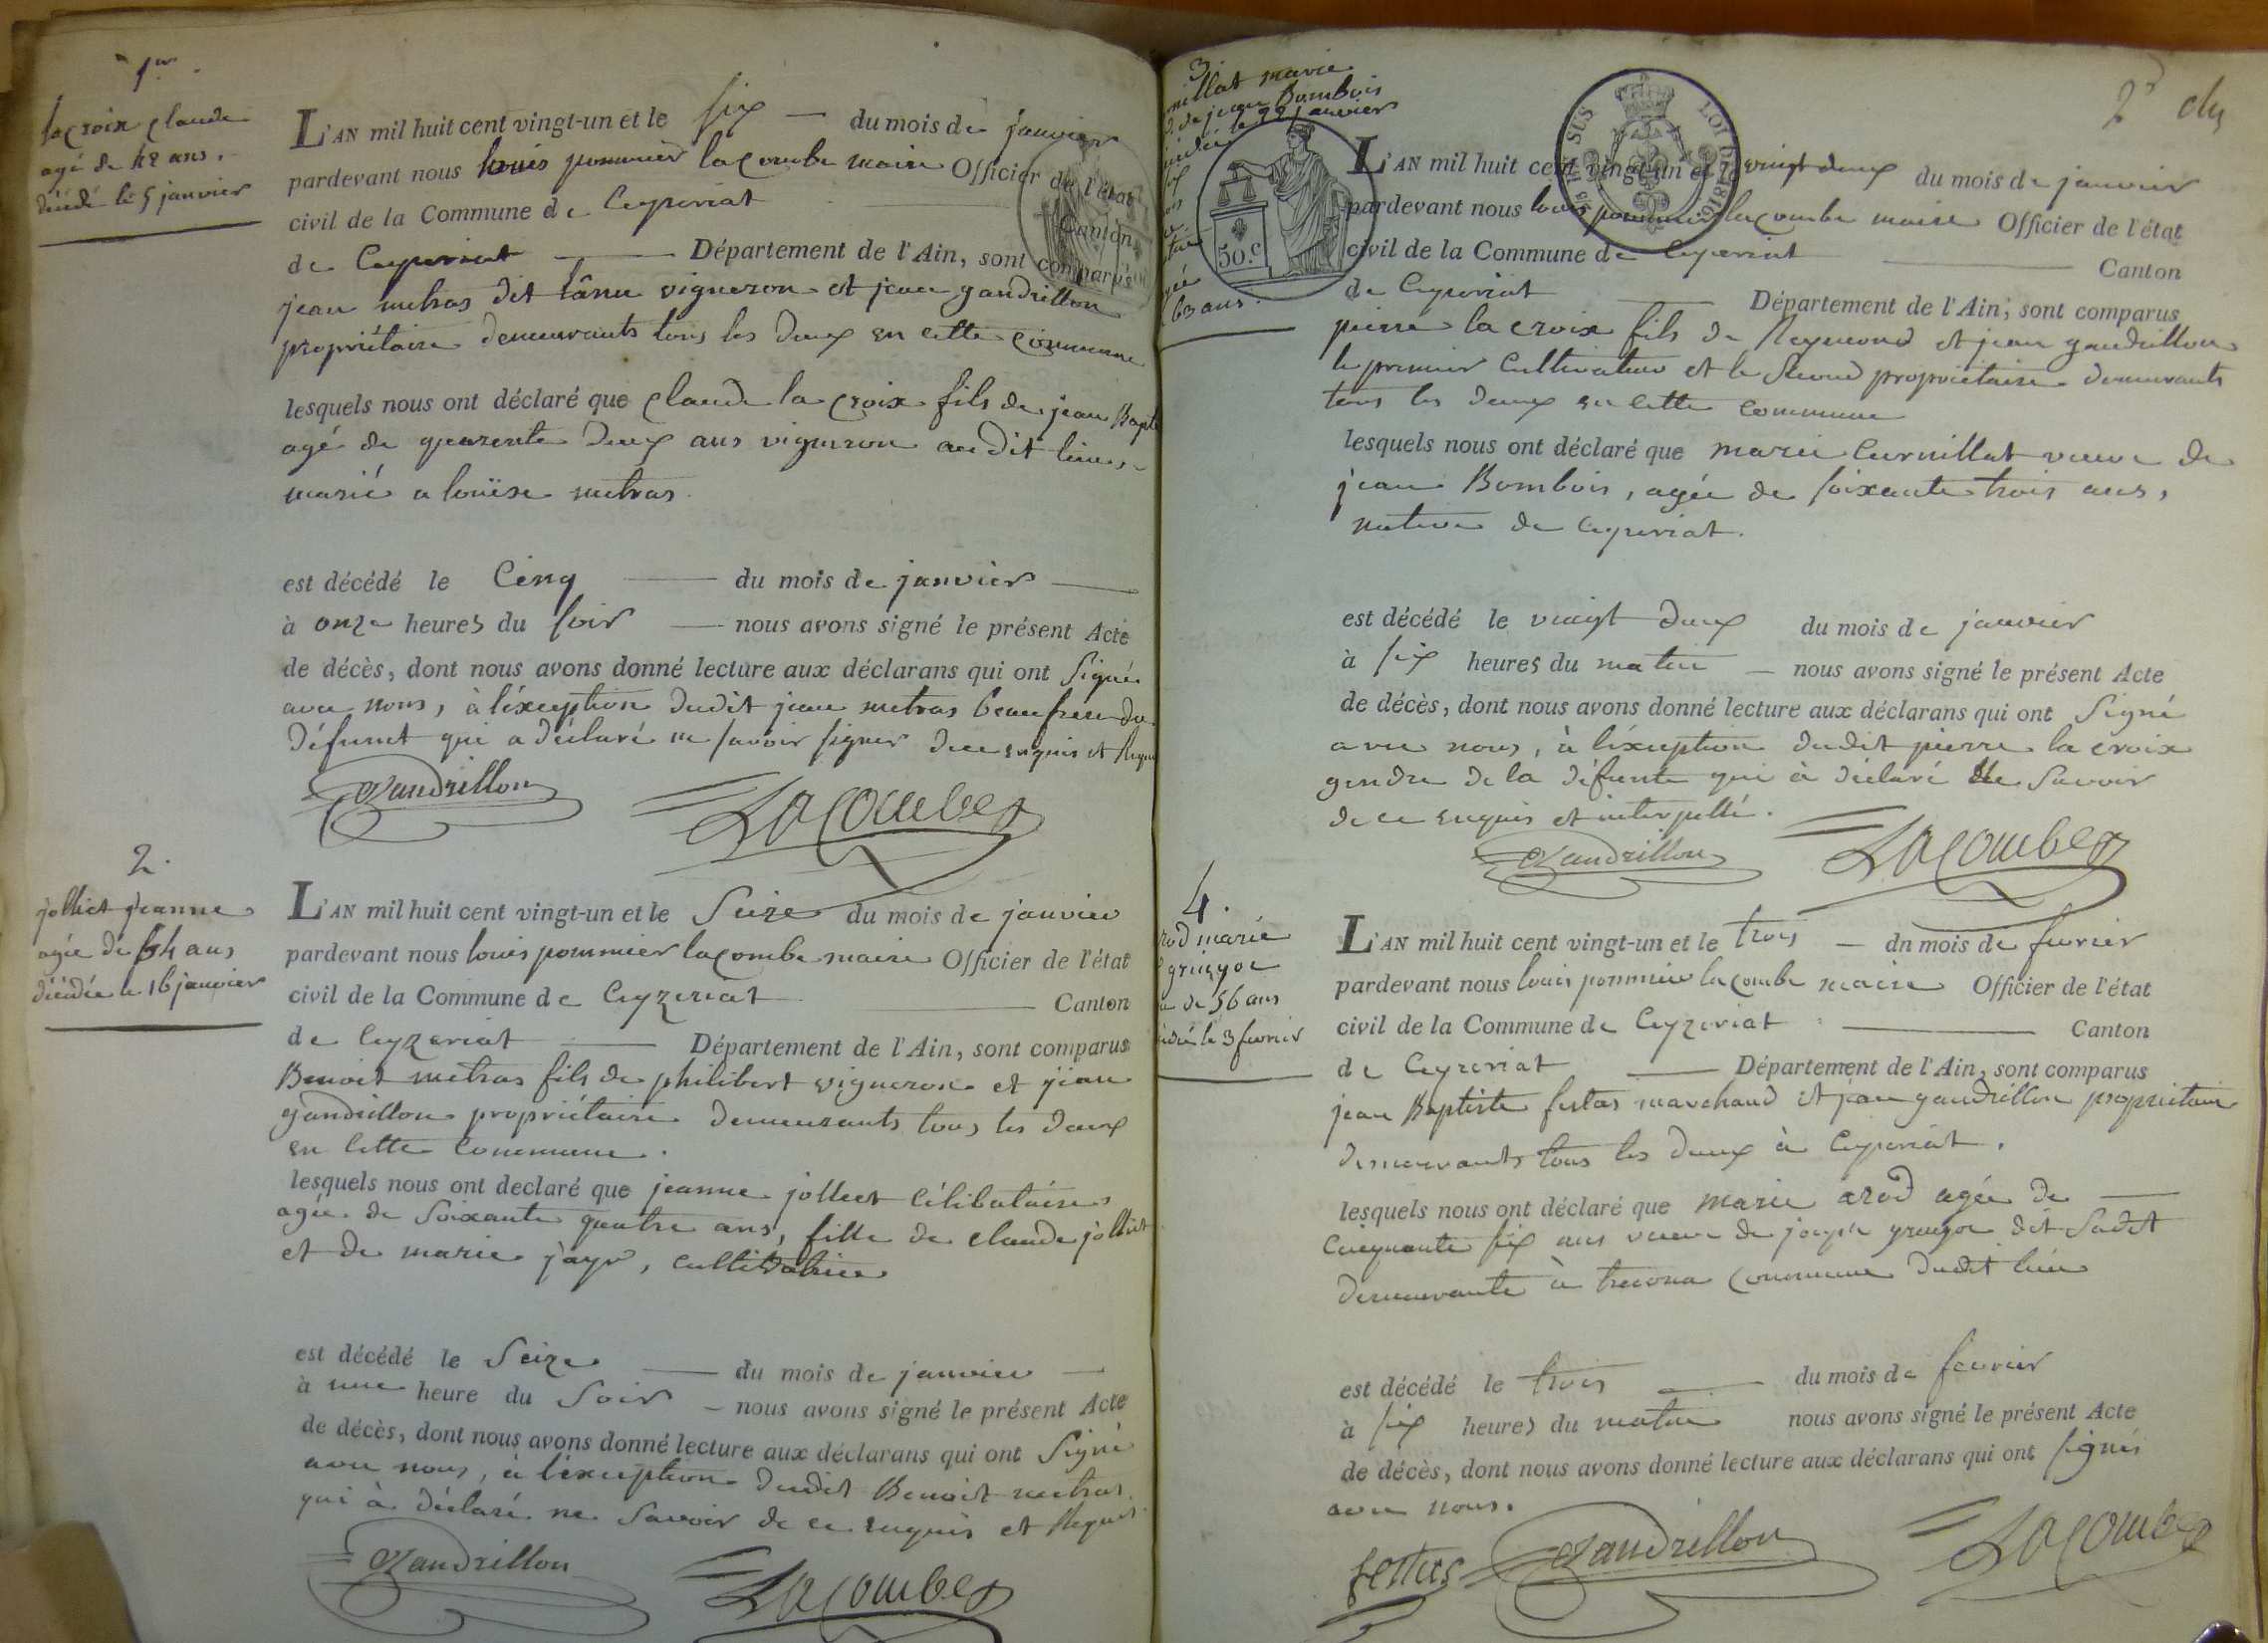 1er.
la croix claude
agé de 42 ans.
décédé le 5 janvier
L'AN mil huit cent vingt-un et le six — du mois de janvier
pardevant nous louis pommier lacombe maire Officier de l'état
civil de la Commune de Ceyzeriat Canton
de Ceyzeriat — Département de l'Ain, sont comparus
jean metras dit vigneron et jean gandrillon
propriétaire demeurants tous les deux en cette commune
lesquels nous ont déclaré que claude la croix fils de jean Bapt
agé de quarente deux ans vigneron audit lieu,
marié a louise metras.
est décédé le Cinq — du mois de janvier —
à onze heures du soir — nous avons signé le présent Acte
de décès, dont nous avons donné lecture aux déclarans qui ont signé
avec nous, à l'exception dudit jean metras beaufrere du
défunt qui a déclaré ne savoir signer de ce enquis et Requ
Gandrillon
Lacombe
2.
jolliet jeanne
agée de 64 ans
décédée le 16 janvier
L'AN mil huit cent vingt-un et le Seize du mois de janvier
pardevant nous louis pommier lacombe maire Officier de l'état
civil de la Commune de Ceyzeriat — Canton
de Ceyzeriat — Département de l'Ain, sont comparus
Benoit metras fils de philibert vigneron et jean
gandrillon propriétaire demeurants tous les deux
en cette commune.
lesquels nous ont declaré que jeanne jolliet célibataire
agée de soixante quatre ans, fille de claude jolliet
et de marie jayr, cultivatrice
est décédé le Seize — du mois de janvier —
à une heure du Soir — nous avons signé le présent Acte
de décès, dont nous avons donné lecture aux déclarans qui ont Signé
avec nous, à l'exception dudit Benoit metras
qui à déclaré ne Savoir de ce enquis et Requis
Gandrillon
Lacombe
2e
3.
marie
de jean Bombois
le 22 janvier
63 ans.
50.c
LOI DE 1816
L'AN mil huit cent vingt-un et vingt deux du mois de janvier
pardevant nous louis pommier lacombe maire Officier de l'état
civil de la Commune de Ceyzeriat — Canton
de Ceyzeriat — Département de l'Ain, sont comparus
pierre la croix fils de Reymond et jean gandrillon
le premier Cultivateur et le Second propriétaire demeurants
tous les deux en cette commune
lesquels nous ont déclaré que marie Curnillat veuve de
jean Bombois, agée de soixante trois ans,
native de Ceyzeriat.
est décédé le vingt deux du mois de janvier
à six heures du matin — nous avons signé le présent Acte
de décès, dont nous avons donné lecture aux déclarans qui ont Signé
avec nous, à l'exception dudit pierre la croix
gendre de la défunte qui à déclaré ne Savoir
de ce enquis et interpellé.
Gandrillon
Lacombe
4.
rod marie
de 56 ans
le 3 fevrier
L'AN mil huit cent vingt-un et le trois — dn mois de fevrier
pardevant nous louis pommier lacombe maire Officier de l'état
civil de la Commune de Ceyzeriat — Canton
de Ceyzeriat — Département de l'Ain, sont comparus
jean Baptiste marchand et jean gandrillon propriétaire
demeurants tous les deux à Ceyzeriat.
lesquels nous ont déclaré que marie arod agée de —
Cinquante six ans veuve de joseph dit
demeurante à commune dudit lieu
est décédé le trois — du mois de fevrier
à six heures du matin nous avons signé le présent Acte
de décès, dont nous avons donné lecture aux déclarans qui ont signés
avec nous.
Gandrillon
Lacombe